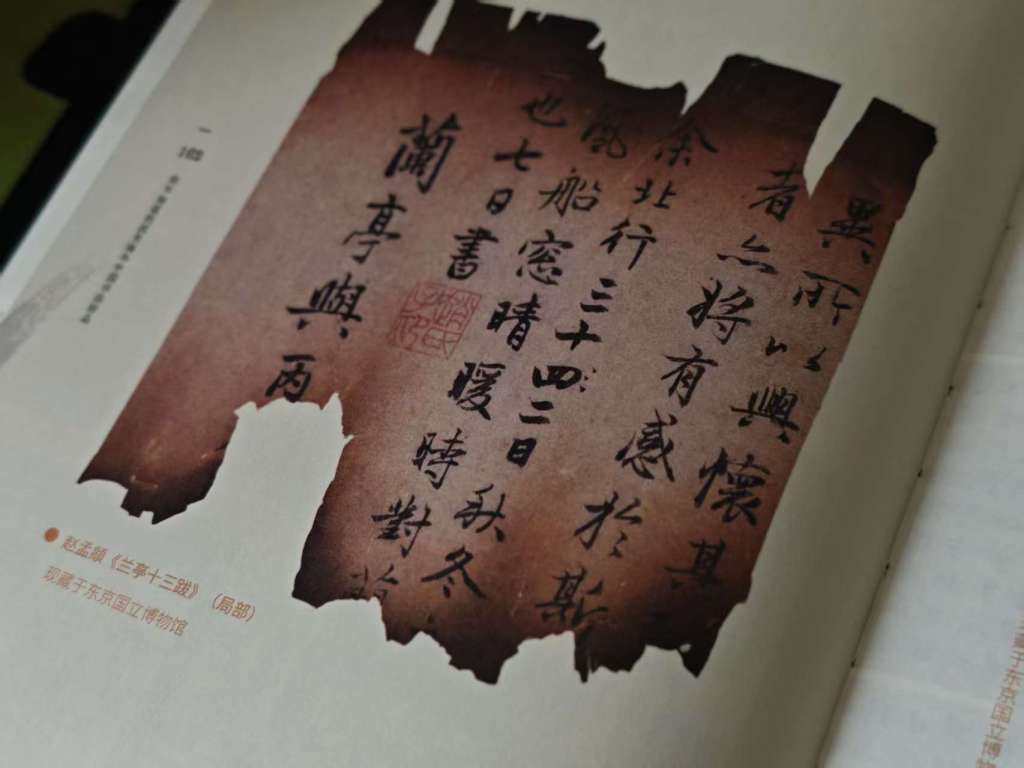 異所以興懷其
者亦將有感於斯
余北行三十四二日秋冬
風船窓晴暖時對
也七日書
趙氏子昂
蘭亭與丙
赵孟頫《兰亭十三跋》（局部）
现藏于东京国立博物馆
藏于东京国立博物